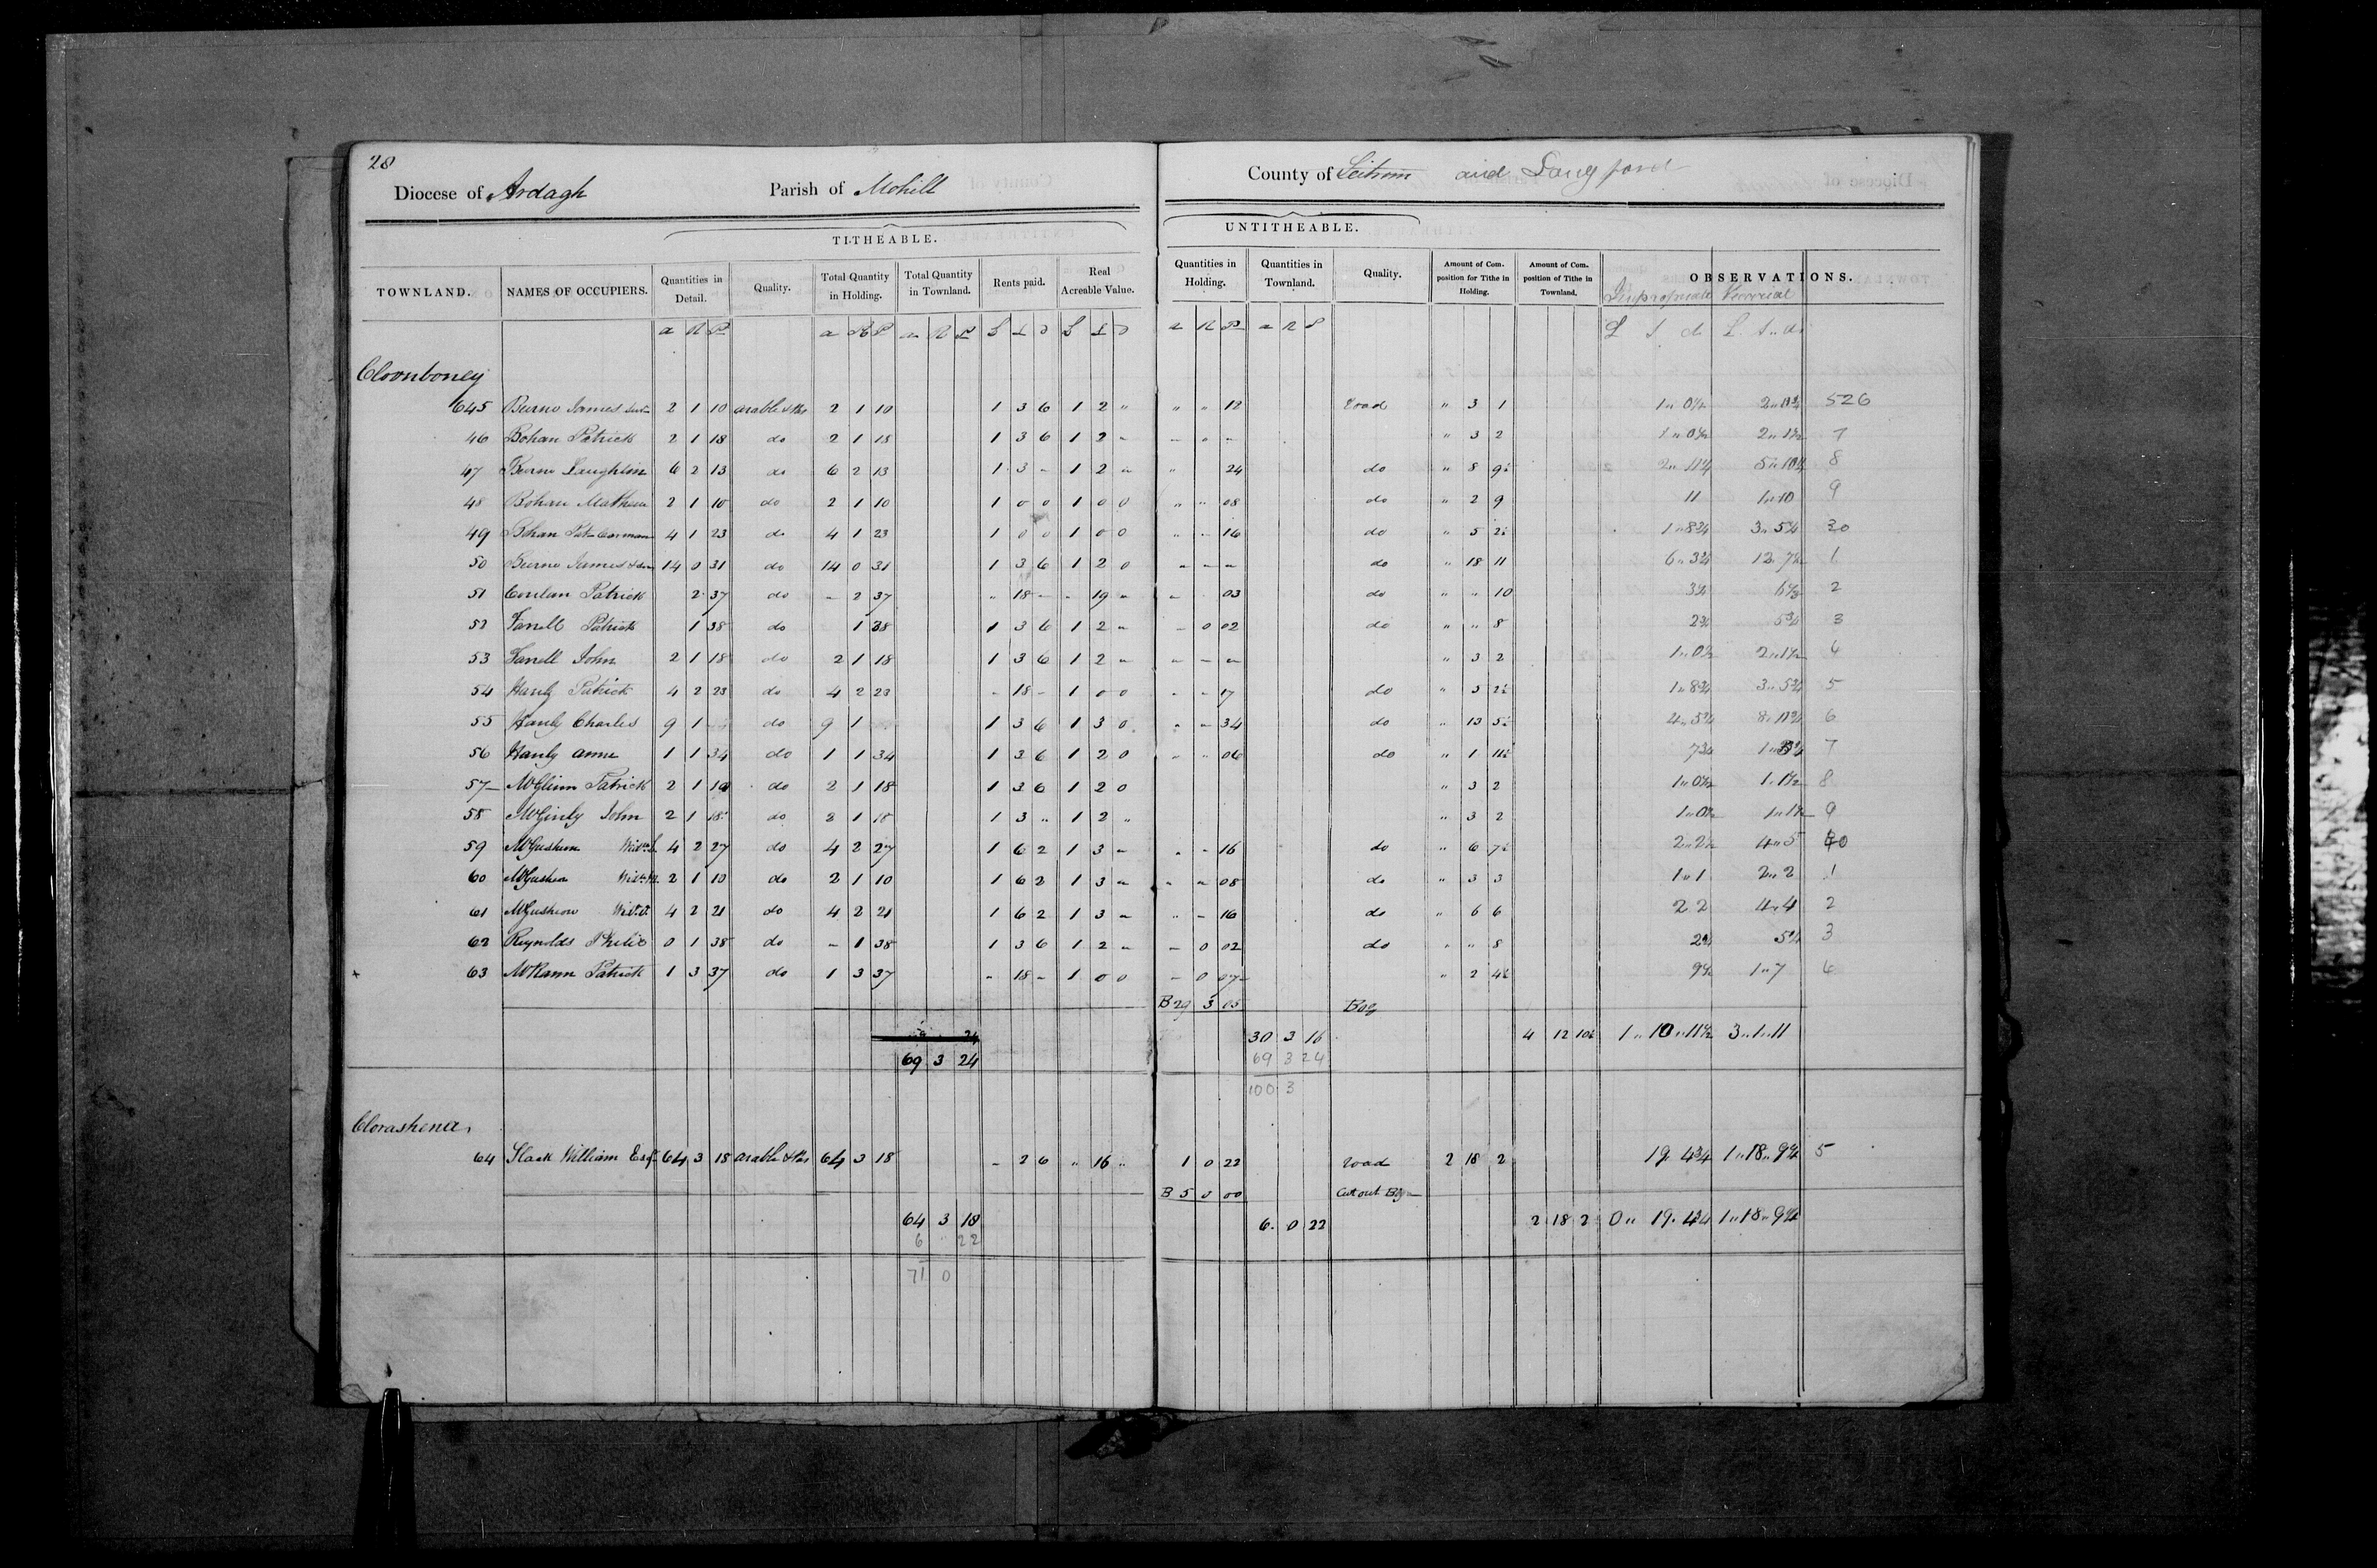 28
Diocese of Ardagh Parish of Mohill County of Leitrim and Longford
TITHEABLE. UNTITHEABLE.
TOWNLAND. NAMES OF OCCUPIERS. Quantities in Detail. Quality. Total Quantity in Holding. Total Quantity in Townland. Rents paid. Real Acreable Value. Quantities in Holding. Quantities in Townland. Quality. Amount of Composition for Tithe in Holding. Amount of Composition of Tithe in Townland. OBSERVATIONS.
Impropriate
a R P a R P a R P £ s d £ s d a R P a R P £ s d £ s d
Cloonboney
645 Beirne James 2 1 10 arable & 2 1 10 1 3 6 1 2 " " " 12 Road " 3 1 1"0½ 526
46 Bohan Patrick 2 1 18 do 2 1 18 1 3 6 1 2 " " 3 2 1"0½ 2"1½ 7
47 Beirne Laughlin 6 2 13 do 6 2 13 1 3 - 1 2 " " 24 do " 8 9½ 2"11¼ 5"10½ 8
48 Bohan Mathew 2 1 10 do 2 1 10 1 0 0 1 0 0 " " 08 do " 2 9 11 1"10 9
49 Bohan Pat Corman 4 1 23 do 4 1 23 1 0 0 1 0 0 " - 16 do " 5 2½ 1"8¾ 3"5¾ 30
50 Beirne James 14 0 31 do 14 0 31 1 3 6 1 2 0 - - - do " 18 11 6"3¾ 12"7½ 1
51 Conlan Patrick 2 37 do - 2 37 " 18 - - 19 - - 03 do " " 10 3½ 6½ 2
52 Farrell Patrick 1 38 do 1 38 1 3 6 1 2 - - 0 02 do " " 8 2¾ 5¼ 3
53 Farrell John 2 1 18 do 2 1 18 1 3 6 1 2 - - - - " 3 2 1"0½ 2"1½ 4
54 Hanly Patrick 4 2 23 do 4 2 23 - 18 - 1 0 0 - - 17 do " 5 2½ 1"8¾ 3"5¾ 5
55 Hanly Charles 9 1 do 9 1 1 3 6 1 3 0 " - 34 do " 13 5½ 4"5¾ 8"11¾ 6
56 Hanly Anne 1 1 34 do 1 1 34 1 3 6 1 2 0 " " 06 do " 1 11½ 7¾ 7
57 McGlinn Patrick 2 1 18 do 2 1 18 1 3 6 1 2 0 " 3 2 1"0½ 1"1½ 8
58 McGinly John 2 1 18 do 2 1 18 1 3 " 1 2 " " 3 2 1"0½ 1"1½ 9
59 4 2 27 do 4 2 27 1 6 2 1 3 - - - 16 do " 6 7½ 2"2½ 4"5 40
60 2 1 10 do 2 1 10 1 6 2 1 3 - - - 08 do " 3 3 1"1 2"2 1
61 4 2 21 do 4 2 21 1 6 2 1 3 - " - 16 do " 6 6 2 2 4"4 2
62 Reynolds Philip 0 1 38 do - 1 38 1 3 6 1 2 - - 0 02 do " " 8 2¾ 5¼ 3
63 McKann Patrick 1 3 37 do 1 3 37 " 18 - 1 0 0 - 0 07 " 2 4½ 9½ 1"7 4
B 29 3 05 Bog
30 3 16 4 12 10½ 1"10"11½ 3"1"11
69 3 24 69 3 24
100 3
Clorashena
64 Slack William Esqr 64 3 18 arable & 64 3 18 - 2 6 " 16 " 1 0 22 Road 2 18 2 19 4¾ 1"18"9¼ 5
B 5 0 00 Cut out Bog
64 3 18 6 0 22 2 18 2 0"19"4¾ 1"18"9¼
6 " 22
71 0